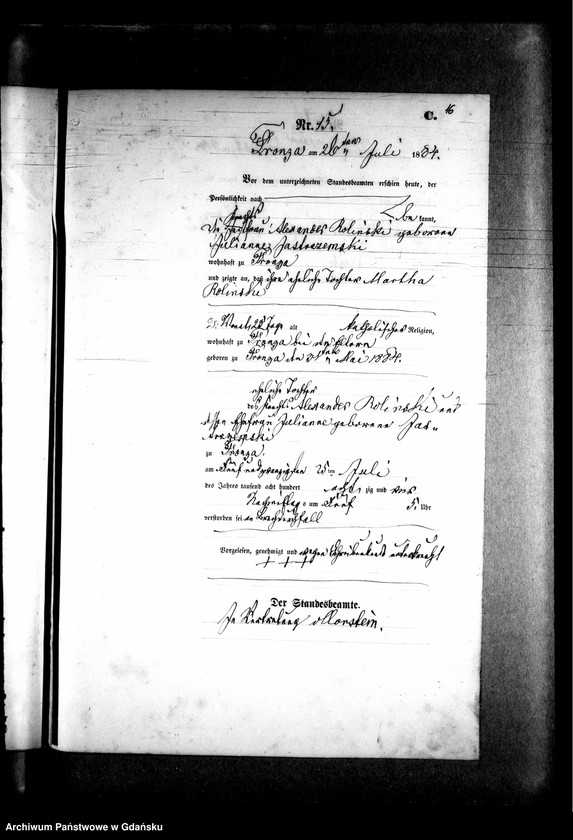 C. 16
Nr. 15.
Fronza am 26ten Juli 1884.
Vor dem unterzeichneten Standesbeamten erschien heute, der
Persönlichkeit nach
bekannt,
die Knechts Ehefrau Alexander Rolinski geborene
Julianne Jastrzemski
wohnhaft zu Fronza
und zeigte an, daß ihre eheliche Tochter Martha
Rolinski
Monat Tage alt katholischer Religion,
wohnhaft zu Fronza bei den Eltern
geboren zu Fronza den 31ten Mai 1884.
eheliche Tochter
des Knechts Alexander Rolinski und
dessen Ehefrau Julianne geborene Jas-
trzemski
zu Fronza.
am fünfundzwanzigsten 25ten Juli
des Jahres tausend acht hundert achtzig und vier
Nachmittag um fünf 5. Uhr
verstorben sei an Brechdurchfall
Vorgelesen, genehmigt und wegen Schreibunkunde unterkreuzt
+ + +
Der Standesbeamte.
In Vertretung